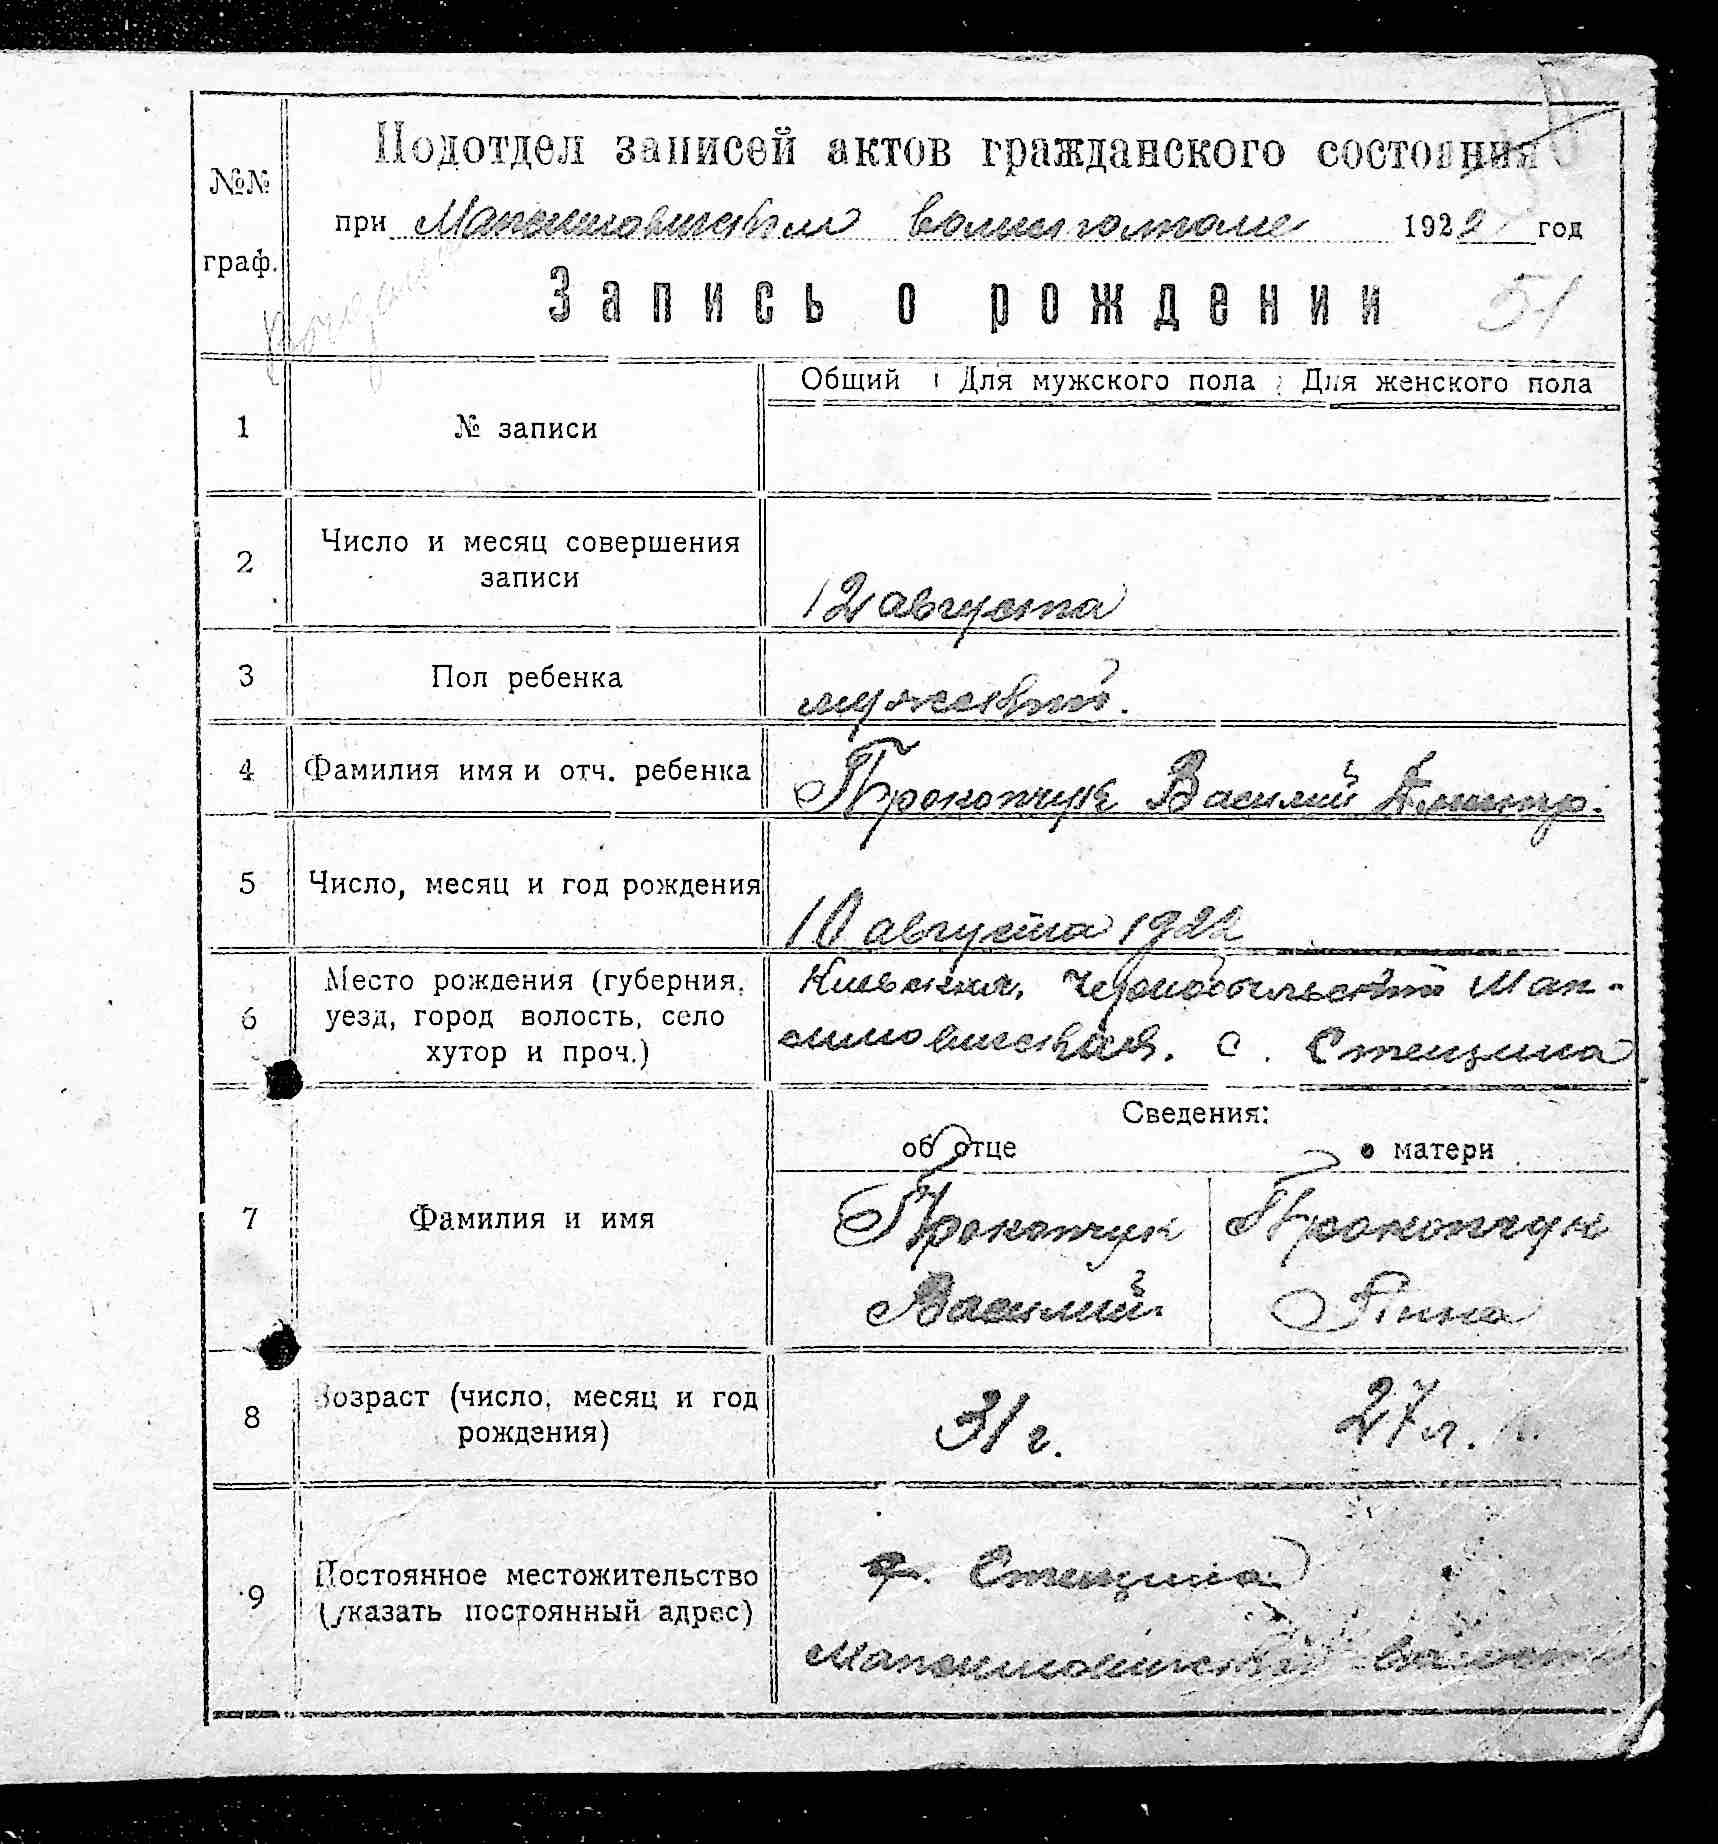 №№ граф.
Подотдел записей актов гражданского состояния
при Максимовиском волисполкоме 1922 год
Запись о рождении
51
Общий Для мужского пола Для женского пола
1 № записи
2 Число и месяц совершения записи
12 августа
3 Пол ребенка
мужской.
4 Фамилия имя и отч. ребенка
Прокопчук Василий Дмитр.
5 Число, месяц и год рождения
10 августа 1922
6 Место рождения (губерния, уезд, город волость, село хутор и проч.)
Киевская, Чернобыльский Мак-
симовиская. с. Стещина
Сведения:
об отце о матери
7 Фамилия и имя
Прокопчук Прокопчук
Василий Анна
8 Возраст (число, месяц и год рождения)
31 г. 27 л.
9 Постоянное местожительство (указать постоянный адрес)
Стещина
волости